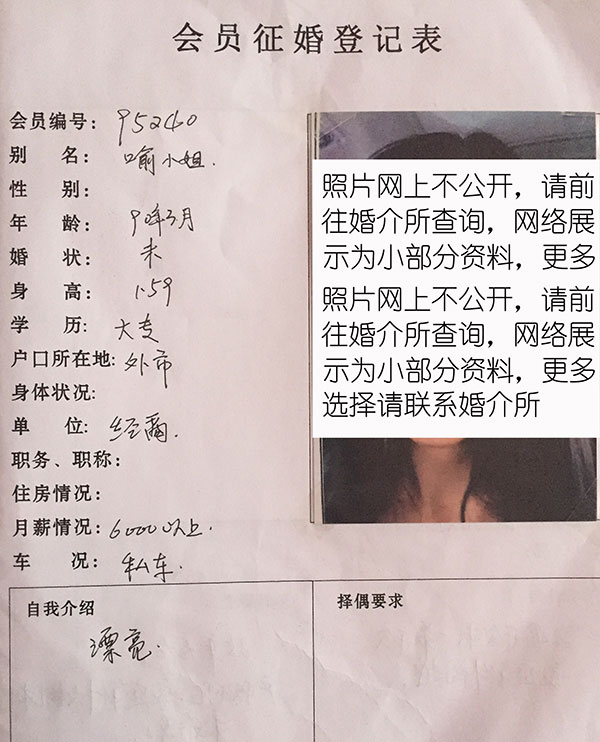 会员征婚登记表
会员编号: 95240
别 名: 喻小姐.
性 别:
年 龄: 90年3月
婚 状: 未
身 高: 1.59
学 历: 大专
户口所在地: 外市
身体状况:
单 位: 经商.
职务、职称:
住房情况:
月薪情况: 6000以上.
车 况: 私车.
照片网上不公开，请前
往婚介所查询，网络展
示为小部分资料，更多
照片网上不公开，请前
往婚介所查询，网络展
示为小部分资料，更多
选择请联系婚介所
自我介绍
漂亮.
择偶要求